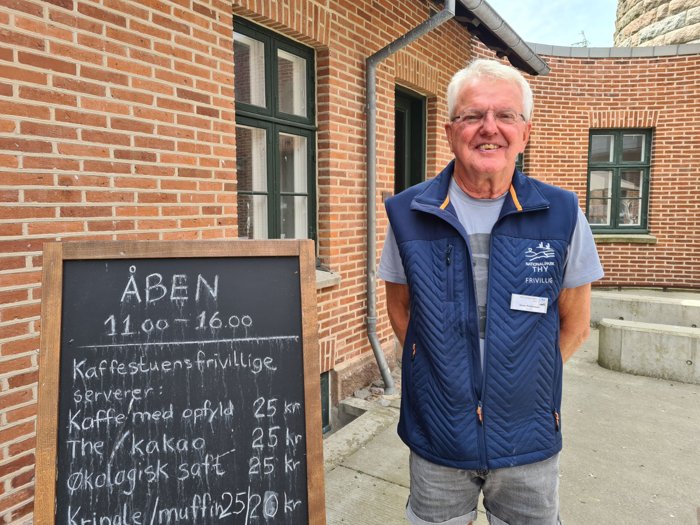 ÅBEN
11.00 - 16.00
Kaffestuens frivillige
serverer:
Kaffe/med opfyld 25 kr
The/kakao 25 kr
Økologisk saft 25 kr
Kringle/muffin 25/20 kr
NATIONALPARK
THY
FRIVILLIG